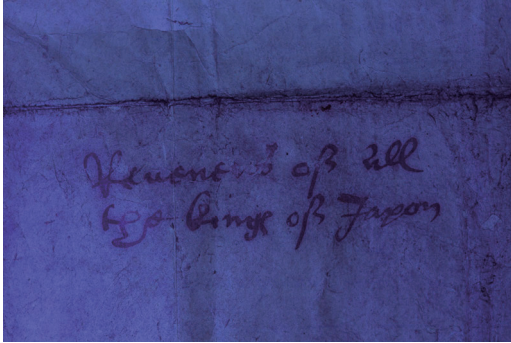 Revenews of all
the kings of Japon